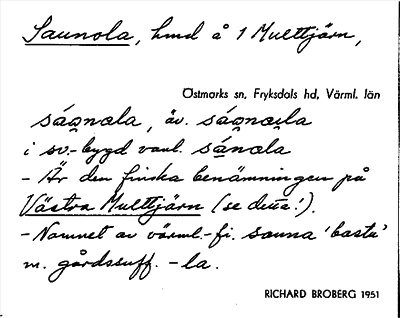 Saunola, hmd å 1 Multtjärn,
Östmarks sn, Fryksdals hd, Värml. län
sáu̯nɷla, äv. sáu̯nɷu̯la
i sv.-bygd vanl. sánɷla
- Är den finska benämningen på
Västra Multtjärn (se detta!).
- Namnet av värml.-fi. sauna 'bastu'
m. gårdssuff. -la.
RICHARD BROBERG 1951